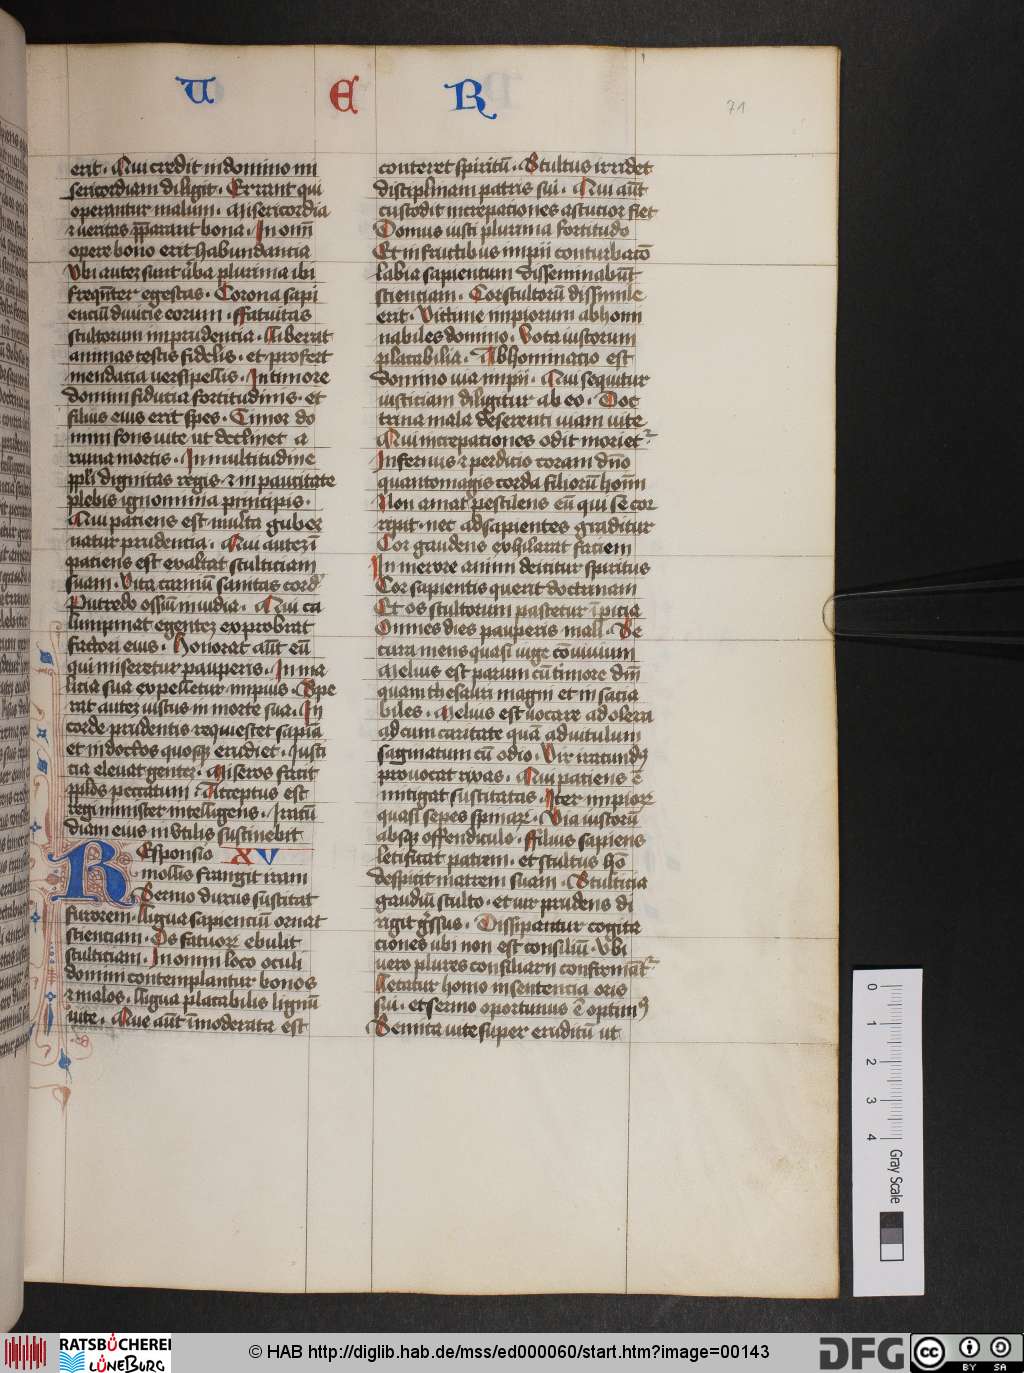 U E R
71
erit. Qui credit in domino mi
sericordiam diligit. Errant qui
operantur malum. Misericordia
et veritas pparant bona. In omī
opere bono erit habundantia
Vbi autez sunt v̾ba plurima ibi
freqn̄ter egestas. Corona sapi
encīu diuicie eorum. ffatuitas
stultorum imprudentia. Liberat
animas testis fidelis. et profert
mendatia uersipellis. In timore
domini fiducia fortitudinis. et
filiis eius erit spes. Timor do
mini fons uite ut declinet a
ruina mortis. In multitudine
ppli dignitas regis et in paucitate
plebis ignominia principis.
Qui patiens est multa guber
natur prudentia. Qui autez ī
patiens est exaltat stulticiam
suam. Vita carniū sanitas cord
Putredo ossiū inuidia. Qui ca
lumpniat egentez exprobrat
factori eius. Honorat aūt eū
qui miseretur pauperis. In ma
litia sua expelletur impius. Spe
rat autez iustus in morte sua. In
corde prudentis requiescet sapiā
et indoctos quosqz erudiet. Justi
cia eleuat gentez. Miseros facit
pplos peccatum. Acceptus est
regi minister intelligens. Iracū
diam eius inutilis sustinebit
Responsio XV
mollis frangit iram
Sermo durus suscitat
furorem. Ligua sapienciū ornat
scienciam. Os fatuor ebulit
stulticiam. In omni loco oculi
domini contemplantur bonos
et malos. Ligua placabilis lignū
uite. Que aūt īmoderata est
conteret spiritū. Stultus irridet
disciplinam patris sui. Qui aūt
custodit increpationes astucior fiet
Domus iusti plurima fortitudo
Et in fructibus impii conturbatō
Labia sapientum disseminabūt
scienciam. Cor stultorū dissimile
erit. Victime impiorum abhomi
nabiles domino. Vota iustorum
placabilia. Abhominatio est
domino uia impii. Qui sequitur
iusticiam diligitur ab eo. Doc
trina mala deserenti uiam uite
Qui increpationes odit moriet
Infernus et perditio coram dn̄o
quantomagis corda filiorū homī
Non amat pestilens eū qui se cor
ripit. nec ad sapientes graditur
Cor gaudens exhilarat faciem
In merore animi deicitur spiritus
Cor sapientis querit doctrinam
Et os stultorum pascetur īpicia
Omnes dies pauperis mali. Se
cura mens quasi iuge cōuiuium
Melius est parum cū timore dnī
quam thesauri magni et insacia
biles. Melius est uocare ad olera
ad cum caritate quā ad uitulum
saginatum cū odio. Vir iracund
prouocat rixas. Qui patiens ē
mitigat suscitatas. Iter impior
quasi sepes spinar. Via iustorū
absqz offendiculo. ffilius sapiens
letificat patrem. et stultus hō
despicit matrem suam. Stulticia
gaudiū stulto. et uir prudens di
rigit gssus. Dissipantur cogita
ciones ubi non est consiliū. Vbi
uero plures consiliarii confirmāt
Letatur homo in sentencia oris
sui. et sermo oportunus ē optim
Semita uite super eruditū ut
0 1 2 3 4
Gray Scale
RATSBÜCHEREI
LÜNEBURG
© HAB http://diglib.hab.de/mss/ed000060/start.htm?image=00143
DFG
cc BY SA